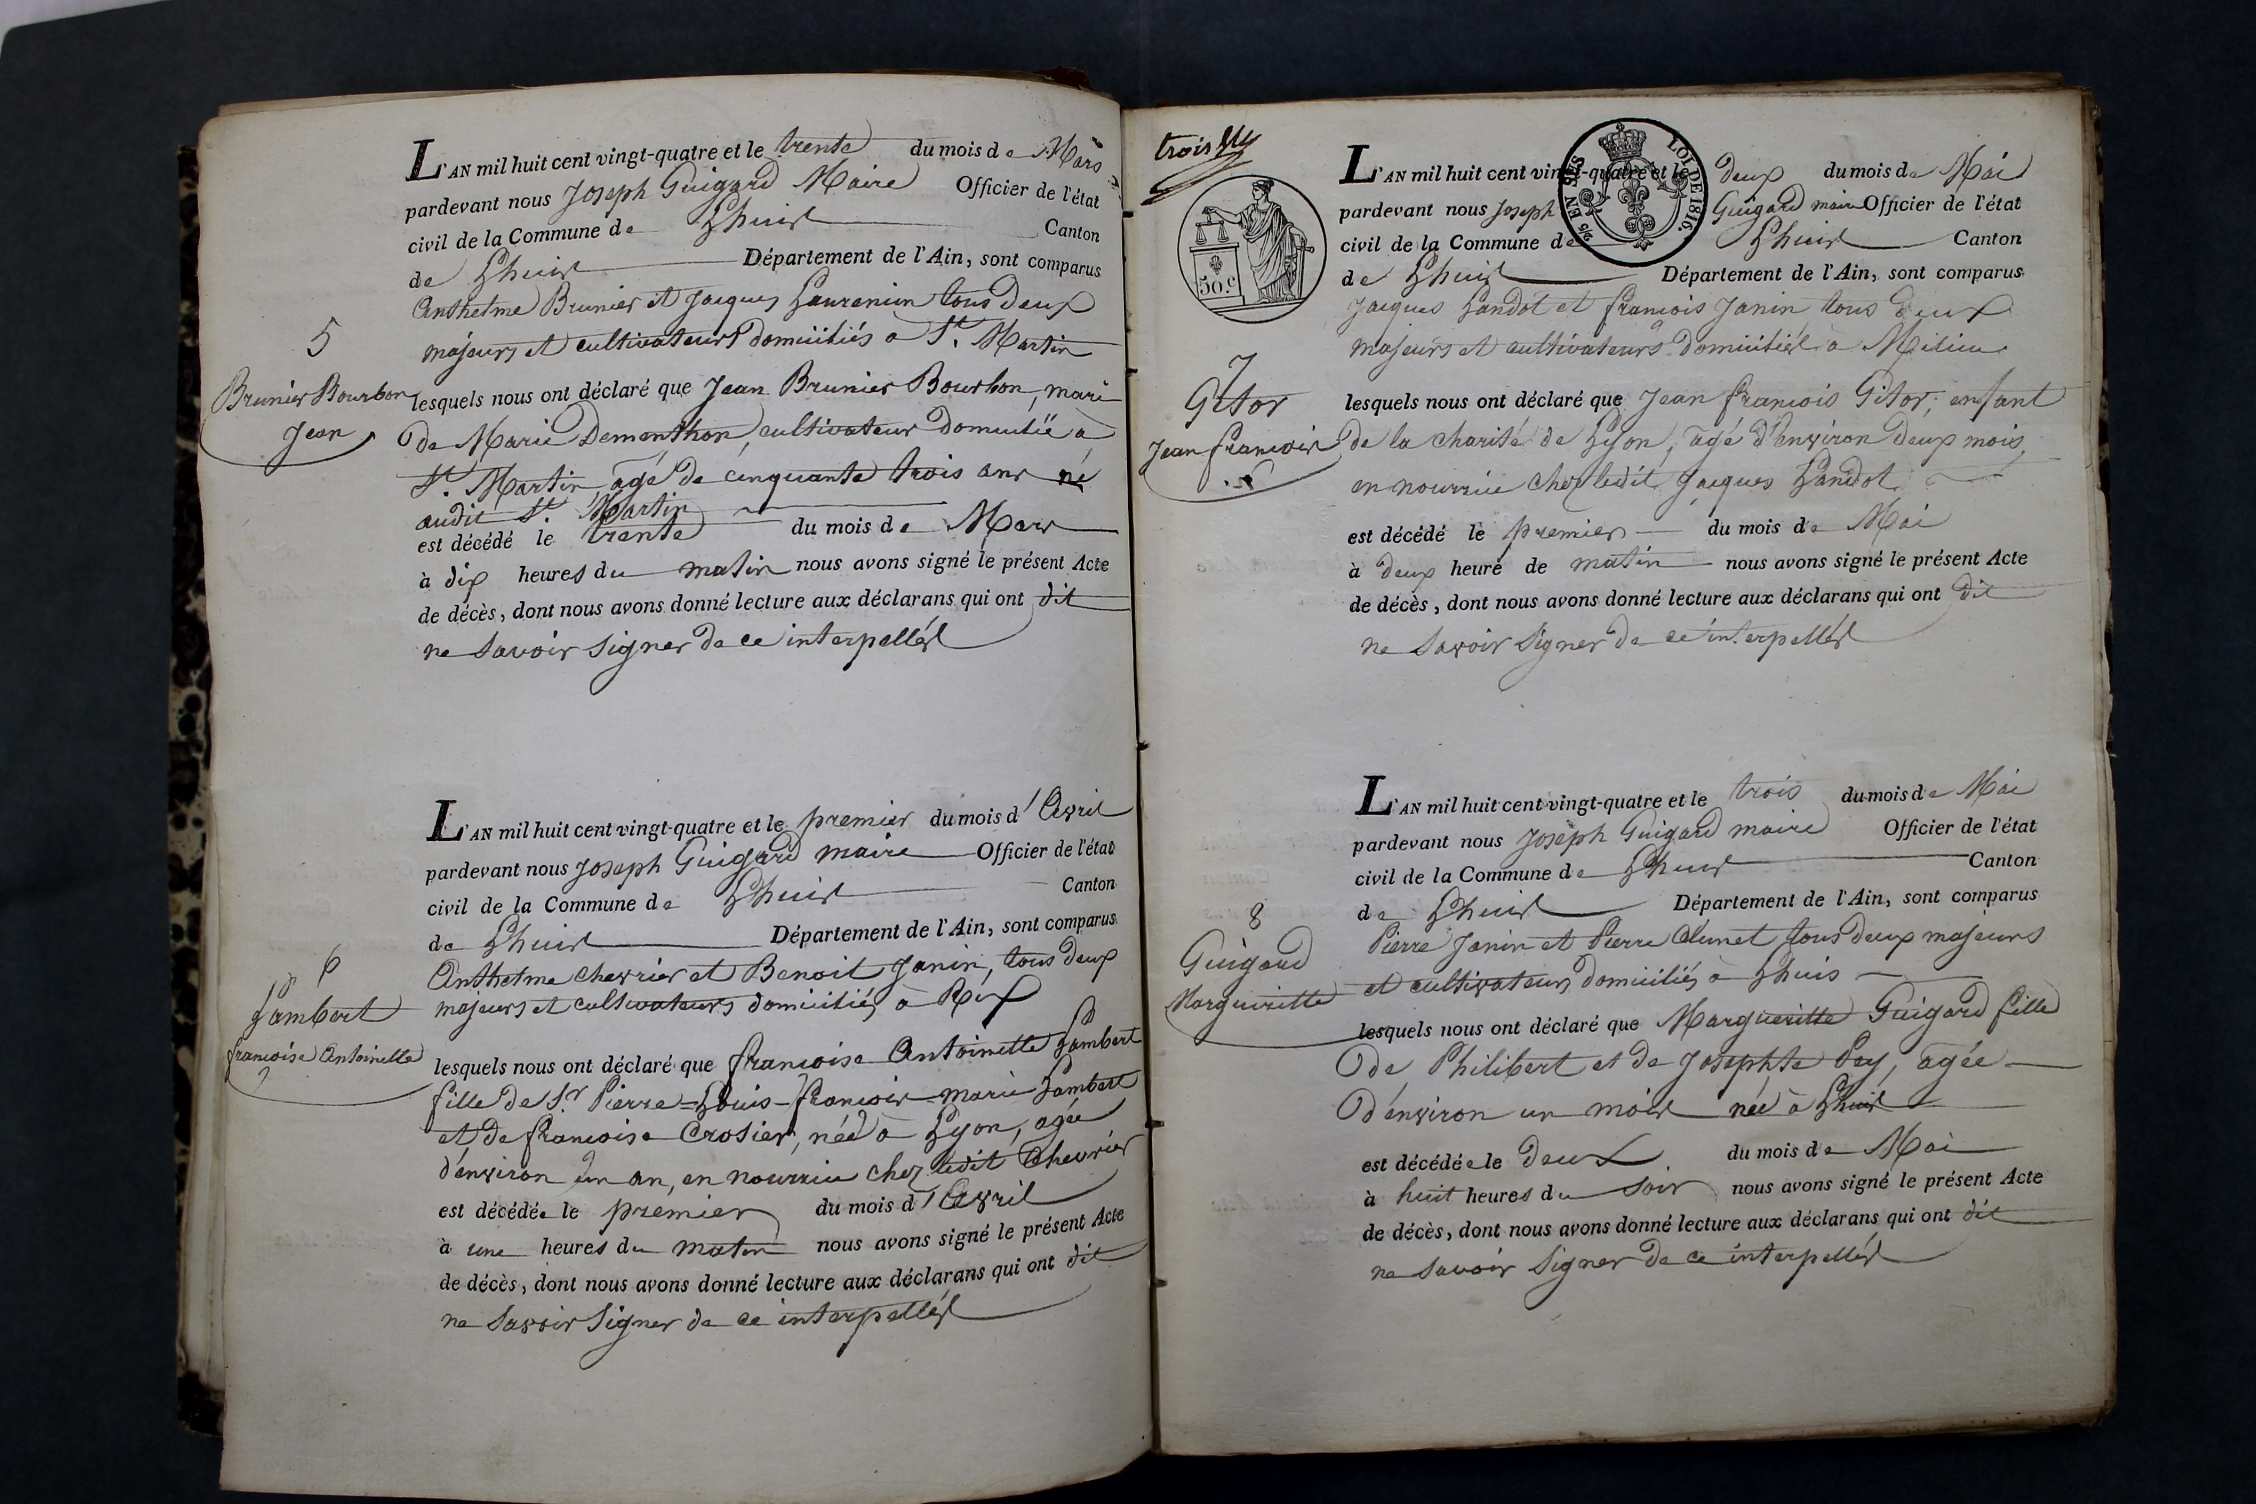 L'AN mil huit cent vingt-quatre et le trente du mois de Mars
pardevant nous Joseph Guigard Maire Officier de l'état
civil de la Commune de Lhuis Canton
de Lhuis Département de l'Ain, sont comparus
Anthelme Brunier et Jacques Laurencin tous deux
majeurs et cultivateurs domiciliés a St. Martin
5
Brunier Bourbon
Jean
lesquels nous ont déclaré que Jean Brunier Bourbon, mari
de Marie Dementhon, cultivateur domicilié a
St. Martin, agé de cinquante trois ans né
audit St. Martin
est décédé le trente du mois de Mars
à dix heures du matin nous avons signé le présent Acte
de décès, dont nous avons donné lecture aux déclarans qui ont dit
ne Savoir Signer de ce interpellés
L'AN mil huit cent vingt-quatre et le premier du mois d'Avril
pardevant nous Joseph Guigard maire Officier de l'état
civil de la Commune de Lhuis Canton
de Lhuis Département de l'Ain, sont comparus
Anthelme Chevrier et Benoit Janin, tous deux
majeurs et cultivateurs domiciliés a Rix
6
Lambert
françoise Antoinette
lesquels nous ont déclaré que françoise Antoinette Lambert
fille de Sr. Pierre-Louis-françois-marie Lambert
et de françoise Crosier, née a Lyon, agée
d'environ un an, en nourrice chez ledit Chevrier
est décédée le premier du mois d'Avril
à une heures du matin nous avons signé le présent Acte
de décès, dont nous avons donné lecture aux déclarans qui ont dit
ne Savoir Signer de ce interpellés
trois
50 c.
5/6 EN SUS LOI DE 1816.
L'AN mil huit cent vingt-quatre et le deux du mois de Mai
pardevant nous Joseph Guigard maire Officier de l'état
civil de la Commune de Lhuis Canton
de Lhuis Département de l'Ain, sont comparus
Jacques Landot et françois Janin tous deux
majeurs et cultivateurs domiciliés à Milieu
7
Gitor
Jean françois
lesquels nous ont déclaré que Jean françois Gitor, enfant
de la charité de Lyon, agé d'environ deux mois,
en nourrice chez ledit Jacques Landot
est décédé le premier du mois de Mai
à deux heure de matin nous avons signé le présent Acte
de décès, dont nous avons donné lecture aux déclarans qui ont dit
ne Savoir Signer de ce interpellés
L'AN mil huit cent vingt-quatre et le trois du mois de Mai
pardevant nous Joseph Guigard maire Officier de l'état
civil de la Commune de Lhuis Canton
de Lhuis Département de l'Ain, sont comparus
Pierre Janin et Pierre Clunet tous deux majeurs
et cultivateurs domiciliés à Lhuis
8
Guigard
Margueritte
lesquels nous ont déclaré que Margueritte Guigard fille
de Philibert et de Josephte Pey, agée
d'environ un mois née à Lhuis
est décédée le deux du mois de Mai
à huit heures du soir nous avons signé le présent Acte
de décès, dont nous avons donné lecture aux déclarans qui ont dit
ne Savoir Signer de ce interpellés